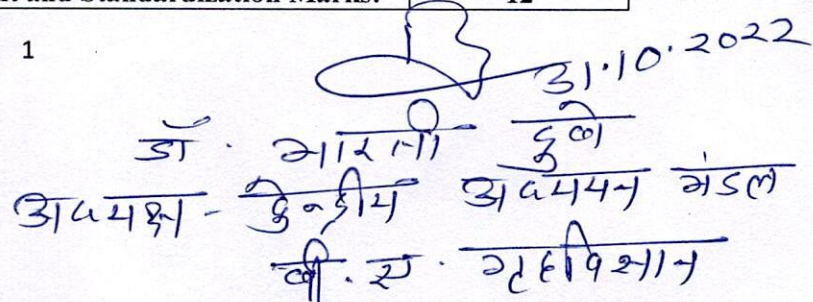 and Standardization Marks. 12
1
31.10.2022
डॉ. भारती दुबे
अध्यक्ष - केन्द्रीय अध्ययन मंडल
बी. ए. गृहविज्ञान